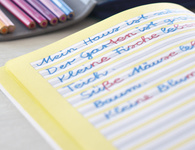 Mein Haus ist
Der Garten ist
Kleine Fische
Teich
Süße Mäuse
Baum
Kleine Blum